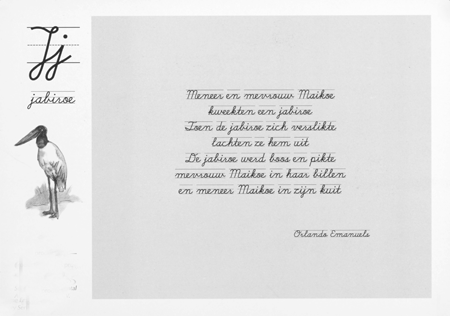 Jj
jabiroe
Meneer en mevrouw Maikoe
kweekten een jabiroe
Toen de jabiroe zich verslikte
lachten ze hem uit
De jabiroe werd boos en pikte
mevrouw Maikoe in haar billen
en meneer Maikoe in zijn kuit
Orlando Emanuels